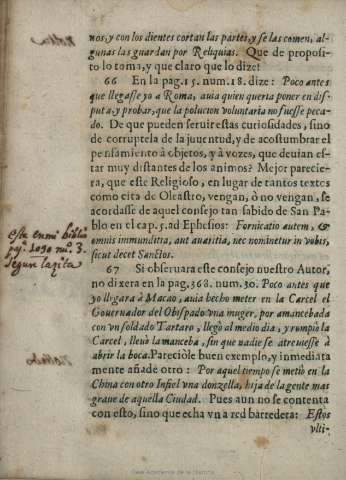 nos, y con los dientes cortan las partes, y se las comen, al-
gunas las guardan por Reliquias. Que de proposi-
to lo toma, y que claro que lo dize!
66 En la pag. 15. num. 18. dize: Poco antes
que llegasse yo a Roma, auia quien queria poner en dis-
puta, y probar, que la polucion voluntaria no fuesse peca-
do. De que pueden seruir estas curiosidades, sino
de corruptela de la juuentud, y de acostumbrar el
pensamiento à objetos, y à vozes, que deuian es-
tar muy distantes de los animos? Mejor parecie-
ra, que este Religioso, en lugar de tantos textos
como cita de Oleastro, vengan, ò no vengan, se
acordasse de aquel consejo tan sabido de San Pa-
blo en el cap. 5. ad Ephesios: Fornicatio autem, &
omnis immunditia, aut auaritia, nec nominetur in vobis,
sicut decet Sanctos.
67 Si obseruara este consejo nuestro Autor,
no dixera en la pag. 368. num. 30. Poco antes que
yo llegara à Macao, auia hecho meter en la Carcel el
Gouernador del Obispado vna muger, por amancebada
con vn soldado Tartaro, llegò al medio dia, y rompiò la
Carcel, lleuò la manceba, sin que nadie se atreuiesse à
abrir la boca. Pareciòle buen exemplo, y inmediata
mente añade otro: Por aquel tiempo se metiò en la
China con otro Infiel vna donzella, hija de la gente mas
graue de aquella Ciudad. Pues aun no se contenta
con esto, sino que echa vna red barredera: Estos
vlti-
este en mi biblia
pag. 1030 nu. 3.
segun la zita
Real Academia de la Historia